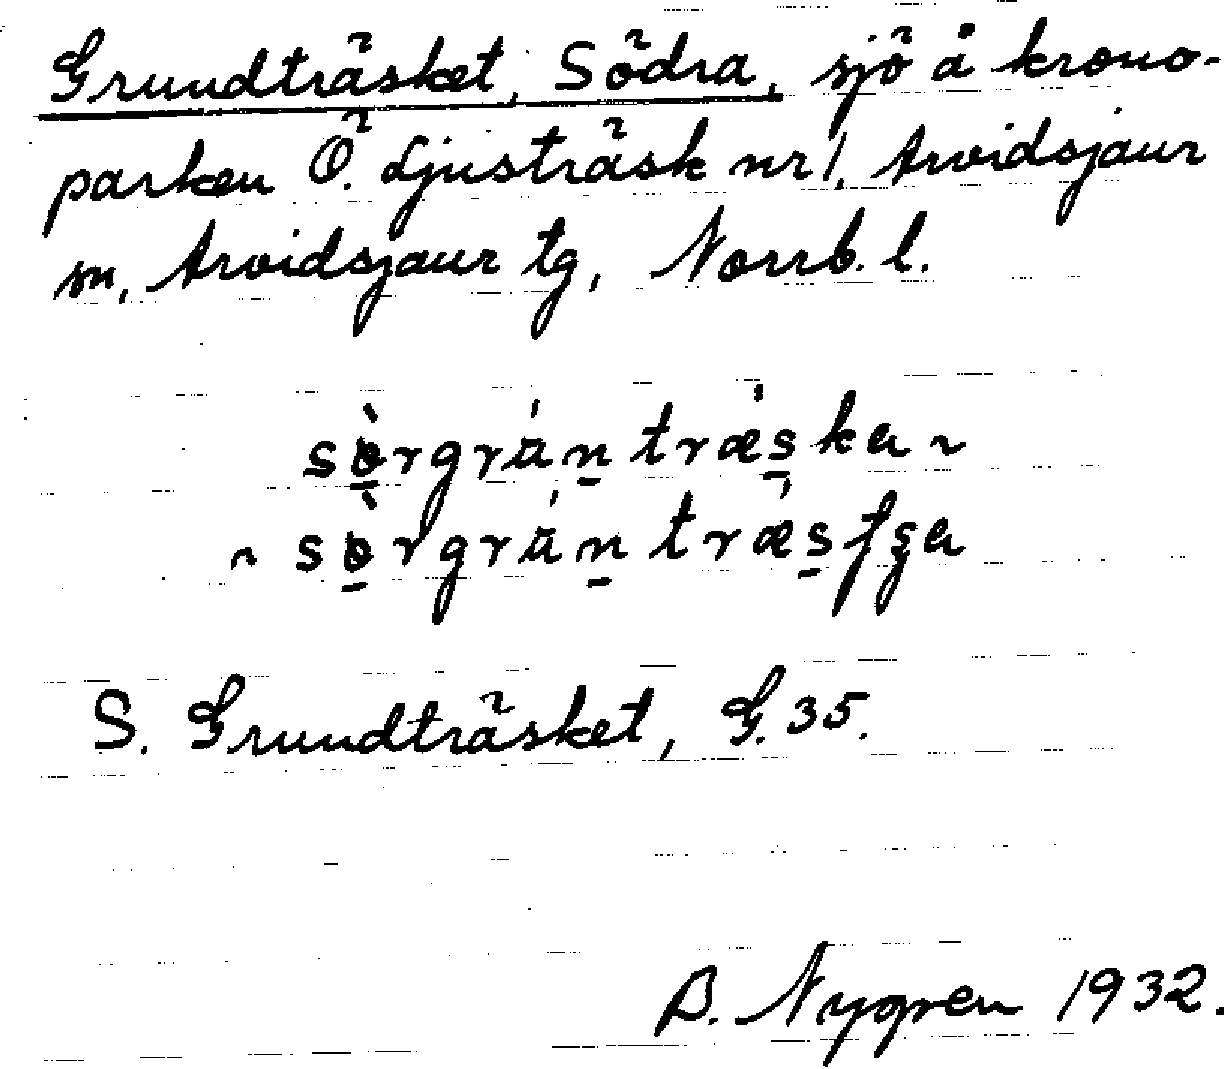 Grundträsket, Södra, sjö å krono-
parken Ö. Ljusträsk nr 1, Arvidsjaur
sn, Arvidsjaur tg, Norrb. l.
S. Grundträsket, G. 35.
B. Nygren 1932.